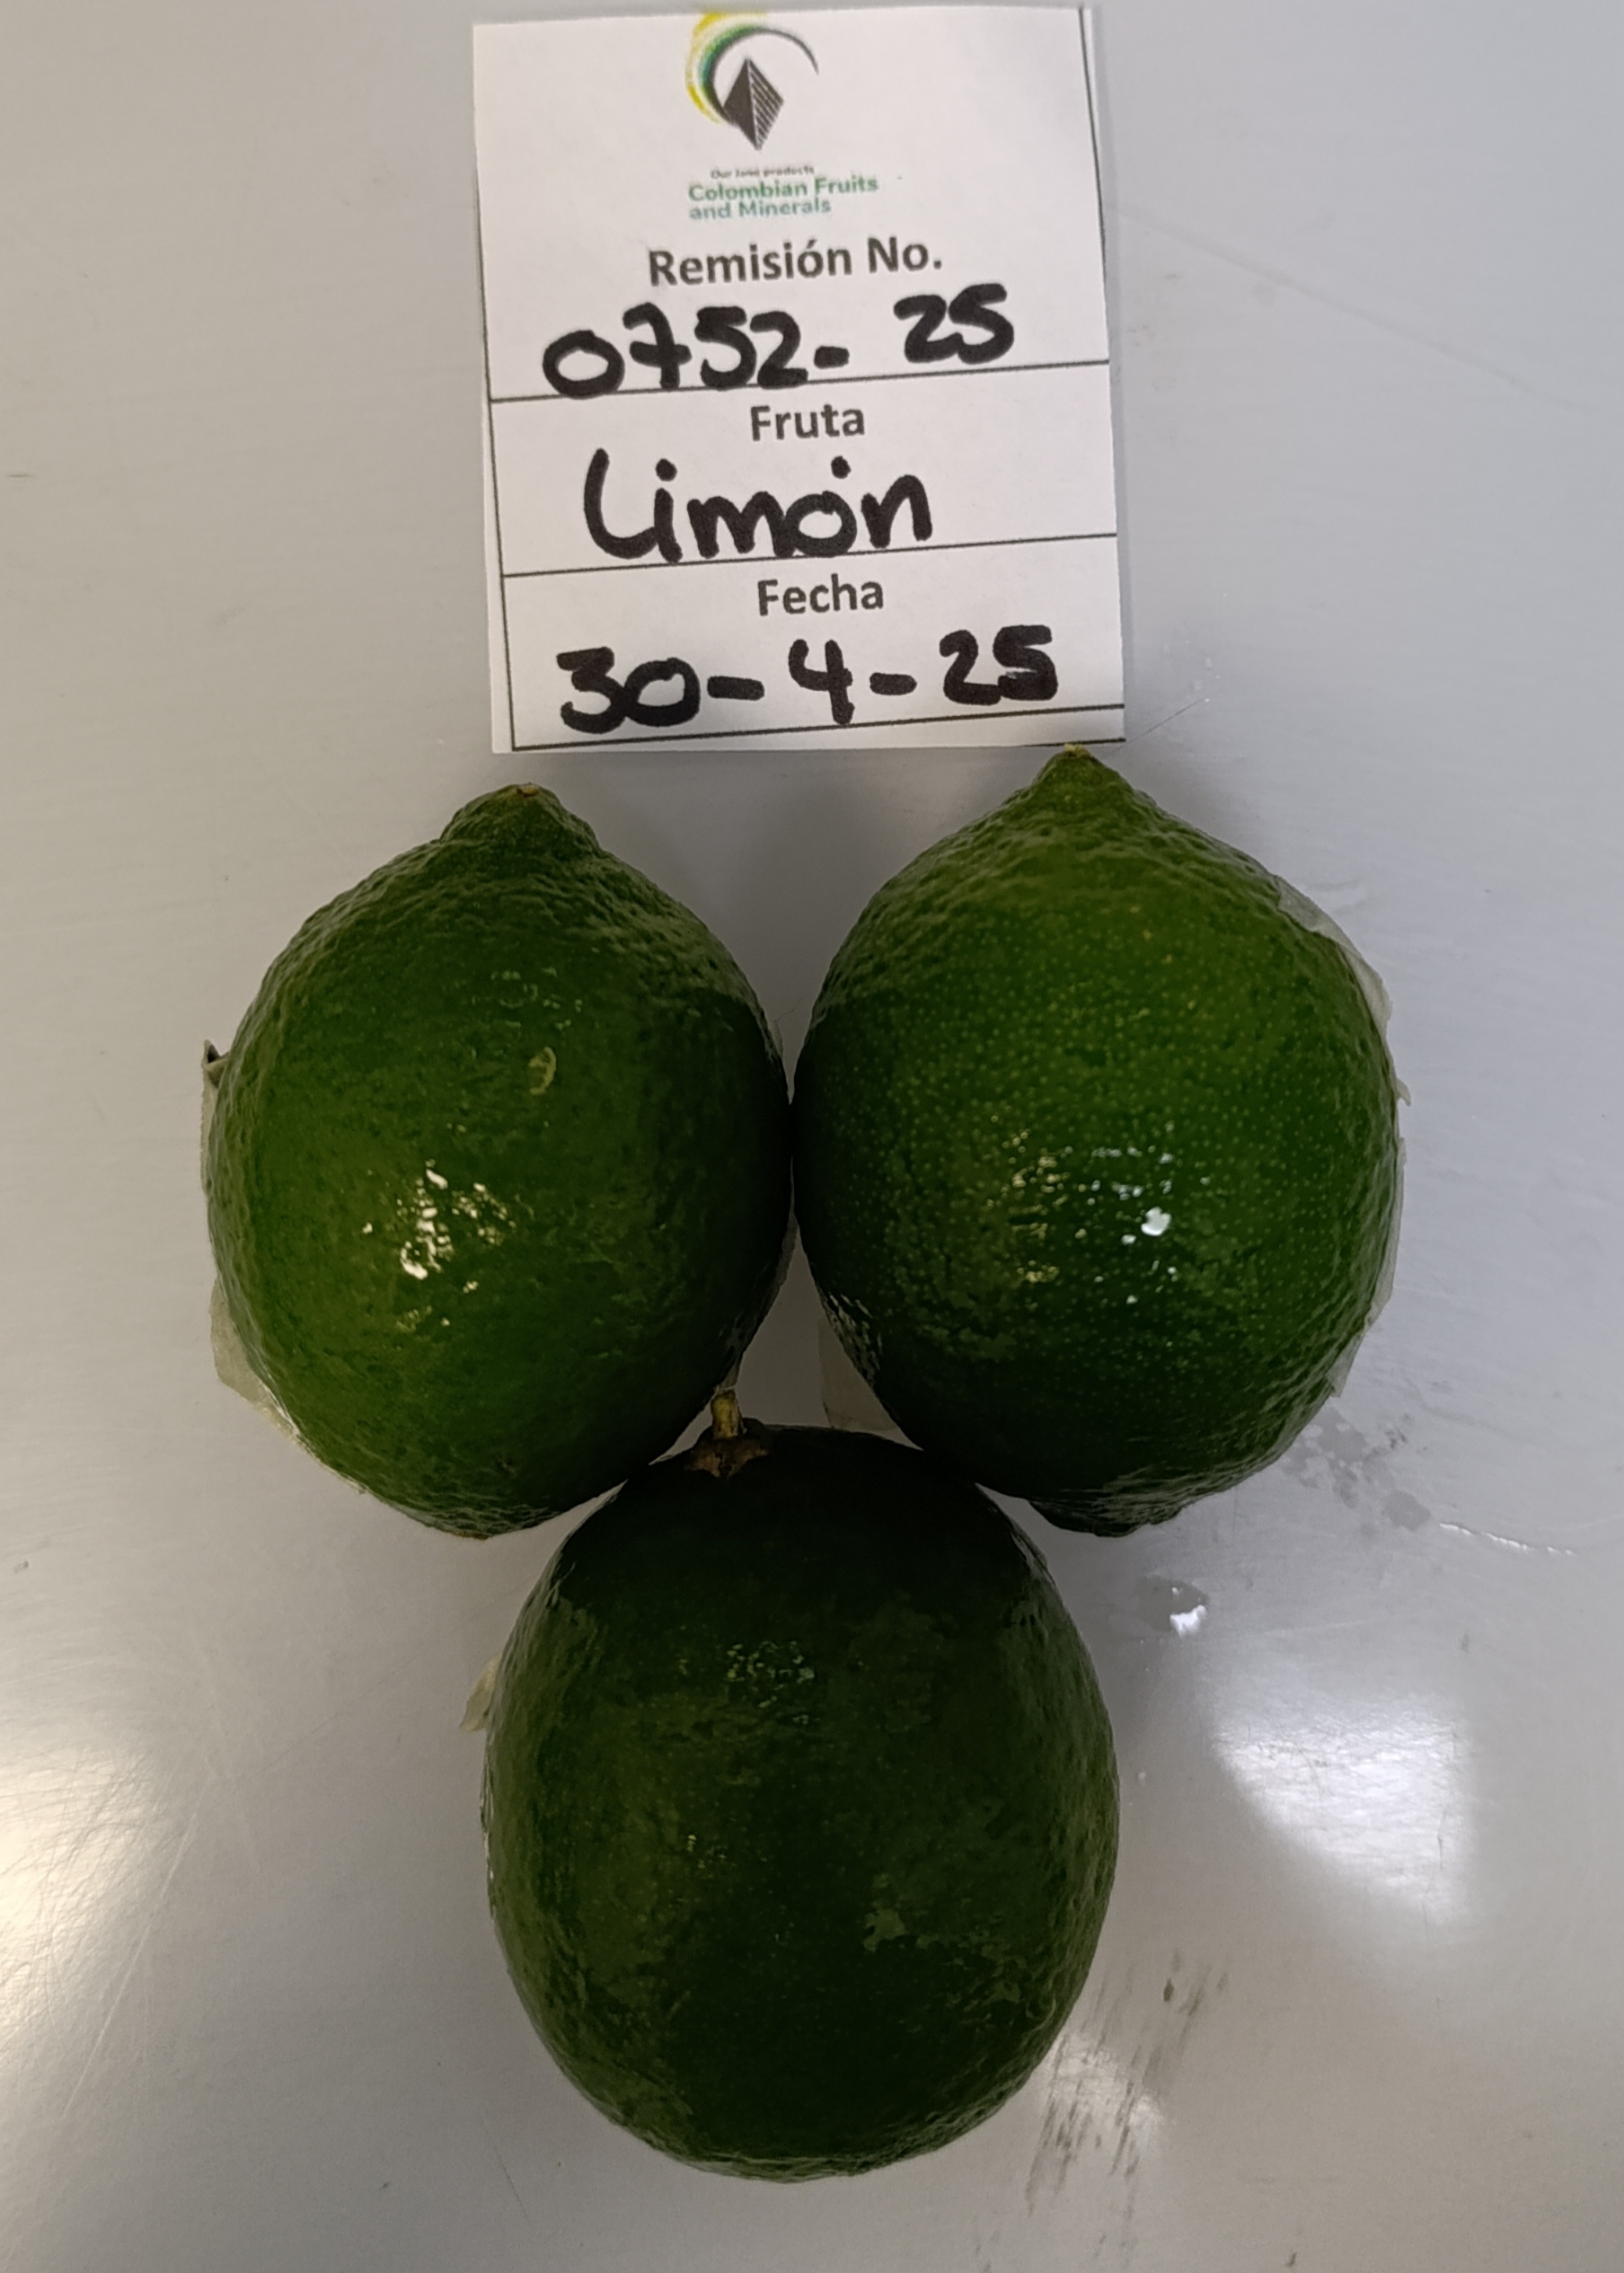 Our land products
Colombian Fruits
and Minerals
Remisión No.
0752- 25
Fruta
Limón
Fecha
30-4-25